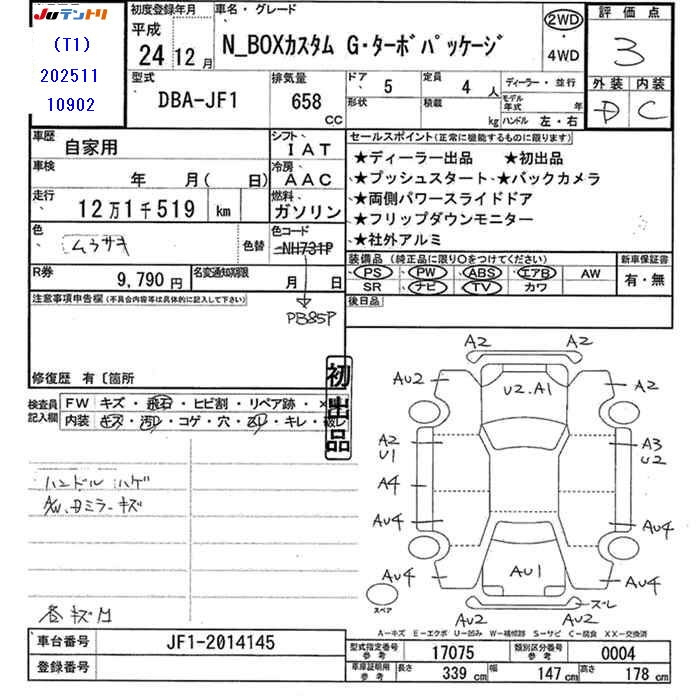 JUテントリ
(T1)
202511
10902
初度登録年月
平成
24 12月
車名・グレード
N_BOXカスタム G・ターボパッケージ
2WD
・
4WD
評価点
3
外装 内装
D C
型式
DBA-JF1
排気量
658 CC
ドア 5
形状
定員 4人
積載 kg
ディーラー・並行
モデル年式 年
ハンドル 左・右
車歴 自家用
シフト IAT
車検 年 月( 日)
冷房 AAC
走行 12万1千519 km
燃料 ガソリン
色 ムラサキ
色替
色コード NH731P
PB85P
R券 9,790円
名変通知期限 月 日
セールスポイント(正常に機能するものに限ります)
★ディーラー出品 ★初出品
★プッシュスタート ★バックカメラ
★両側パワースライドドア
★フリップダウンモニター
★社外アルミ
装備品(純正品に限り○をつけてください)
PS PW ABS エアB AW
SR ナビ TV カワ
新車保証書
有・無
後日品
注意事項申告欄(不具合内容等は具体的に記入して下さい)
修復歴 有〔箇所
初出品
検査員記入欄
FW キズ・飛石・ヒビ割・リペア跡・×
内装 キズ・汚れ・コゲ・穴・スレ・キレ・破レ
ハンドル ハゲ
A/W、ドミラーキズ
各キズ凹
A2 A2
AU2 U2.A1 A2
A2 U1 A3 U2
A4
AU4 AU4
AU4 AU1 AU4
スペア
AU2 AU2 スレ
A-キズ E-エクボ U-凹み W-補修跡 S-サビ C-腐食 XX-交換済
車台番号 JF1-2014145
登録番号
型式指定番号 参考 17075
類別区分番号 参考 0004
車庫証明用 参考 長さ 339cm 幅 147cm 高さ 178cm